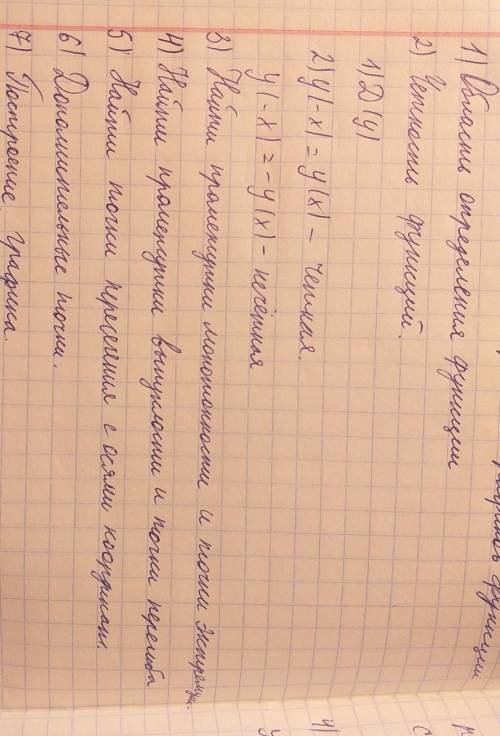 функции
1) Область определения функции
2) Чётность функций.
1) D(y)
2) y(-x) = y(x) - чётная.
y(-x) = -y(x) - нечётная
3) Найти промежутки монотонности и точки экстремум.
4) Найти промежутки выпуклости и точки перегиба
5) Найти точки пересечения с осями координат.
6) Дополнительные точки.
7) Построение графика.
4)